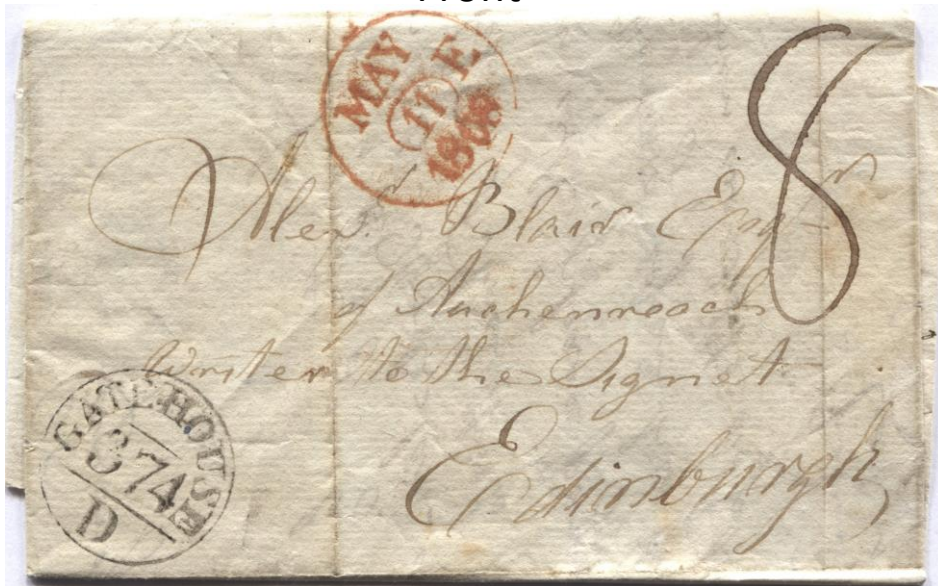 MAY E
11
1808
8
Alexr. Blair Esqr
of Auchenreoch
Writer to the Signet
Edinburgh
GATEHOUSE
374
D